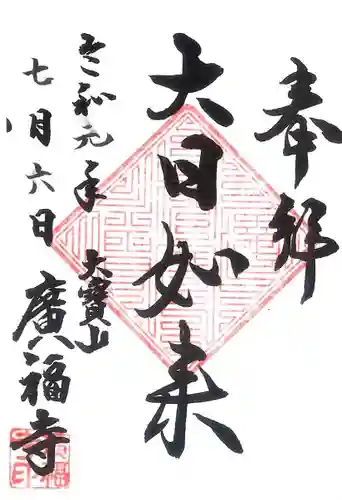 奉拝
大日如来
令和元年
七月六日
大寶山
廣福寺